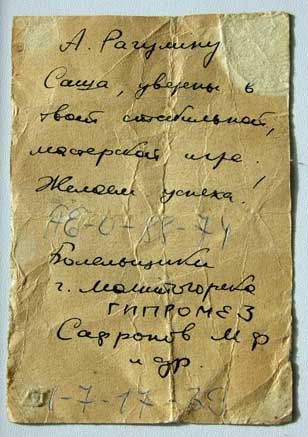 А. Рагулину
Саша, уверены в
твоей стабильной,
мастерской игре!
Желаем успеха!
АЕ-0-88-74
Болельщики
г. Магнитогорска
ГИПРОМЕЗ
Сафронов М Ф
и др.
1-7-17-39